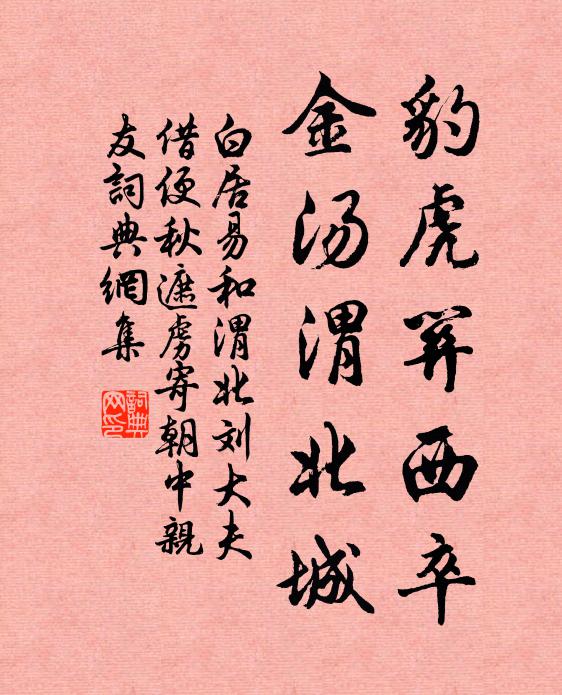 豹虎關西卒
金汤渭北城
白居易和渭北刘大夫
借便秋遮虏寄朝中親
友詞典網集
詞典
网印